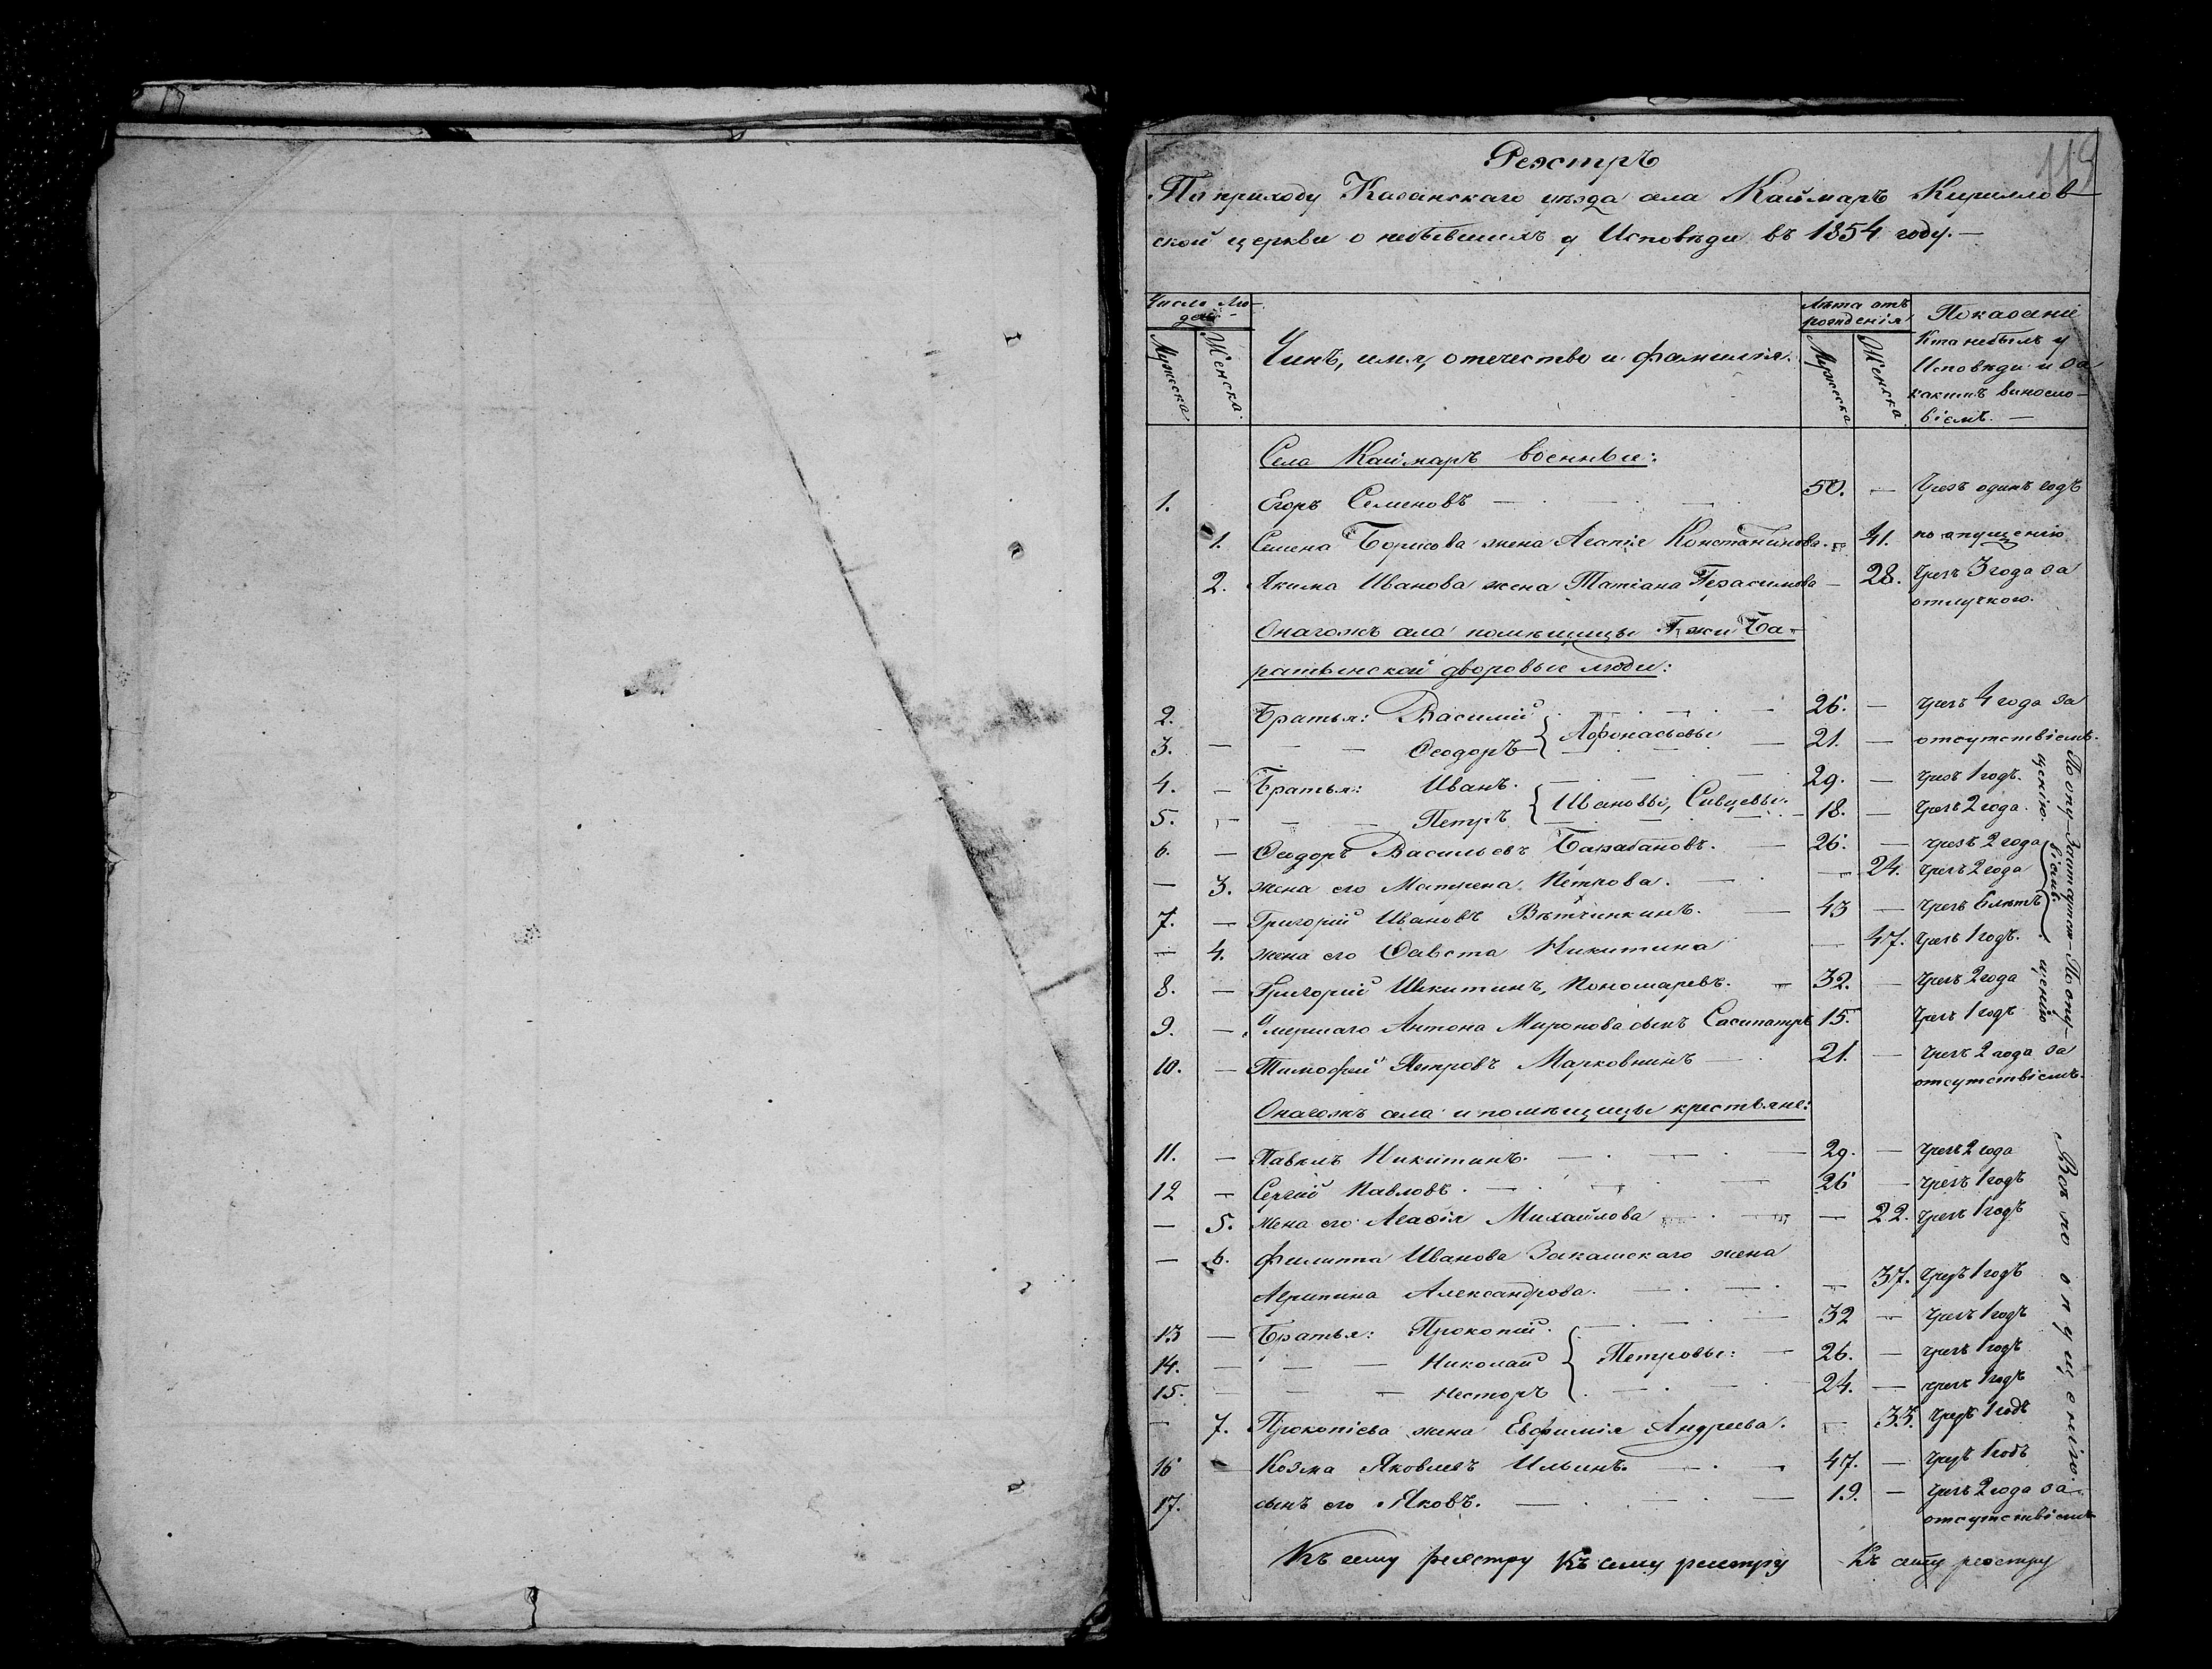 119
Реэстръ
По приходу Казанскаго уѣзда села Каймаръ Кириллов
ской церкви о небывшихъ у Исповѣди въ 1854 году. —
Число Лю-
дей. Лѣта отъ
рожденія Показаніе
Мужеска Женска. Чинъ, имя, отечество и фамилія. Мужеска Женска Кто небылъ у
Исповѣди и за
какимъ винословіемъ. —
Села Каймаръ военные:
1. Егоръ Семеновъ — 50. — Чрезъ одинъ годъ
1. Семена Борисова жена Агапія Константинова. — 41. по опущенію
2. Якима Иванова жена Татіана Герасимова — 28. Чрезъ 3 года за
отлучкою.
Онагожъ села помѣщицы Г-жи Ба-
ратынской дворовые люди:
2. Братья: Василий — 26. — Чрезъ 4 года за
3. — — — Ѳеодоръ } Афонасьевы — 21. — отсутствіемъ.
4. — Братья: Иванъ. — 29. — Чрезъ 1 годъ.
5. — — — Петръ { Ивановы, Сивцевы. — 18. — Чрезъ 2 года.
По опу-
щенію.
6. — Ѳедоръ Васильевъ Барабановъ. — 26. — чрезъ 2 года
— 3. жена его Матрена Петрова. — 24. Чрезъ 2 года
7. — Григорий Ивановъ Вѣтчинкинъ. — 43 — Чрезъ 6 лѣтъ
— 4. жена его Ѳавста Никитина — 47. Чрезъ 1 годъ.
8. — Григорий Никитинъ, Пономаревъ. — 32. — Чрезъ 2 года
9. — Умершаго Антона Миронова сынъ Сасипатръ 15. Чрезъ 1 годъ
По опу-
щенію
10. — Тимофей Петровъ Марковнинъ — 21. — Чрезъ 2 года за
отсутствіемъ.
Онагожъ села и помѣщицы крестьяне:
11. — Павелъ Никитинъ. — 29. — Чрезъ 2 года
12 — Сергий Павловъ. — 26 — Чрезъ 1 годъ
— 5. жена его Агафія Михайлова — — 22. Чрезъ 1 годъ
— 6. Филиппа Иванова Закамскаго жена
Агрипина Александрова. — — 37. Чрезъ 1 годъ
13 — Братья: Прокопий. — 32 — Чрезъ 1 годъ
14. — — — Николай { Петровы: — 26. — чрезъ 1 годъ
15. — — — Несторъ — 24. — чрезъ 1 годъ
— 7. Прокопіева жена Евфимія Андреева. — 33. Чрезъ 1 годъ
16 — Козма Яковлевъ Ильинъ. — 47. — Чрезъ 1 годъ
17. сынъ его Яковъ. — 19. — Чрезъ 2 года за
отсутствіемъ
Все по опущенію.
Къ сему реэстру Къ сему реэстру Къ сему реэстру